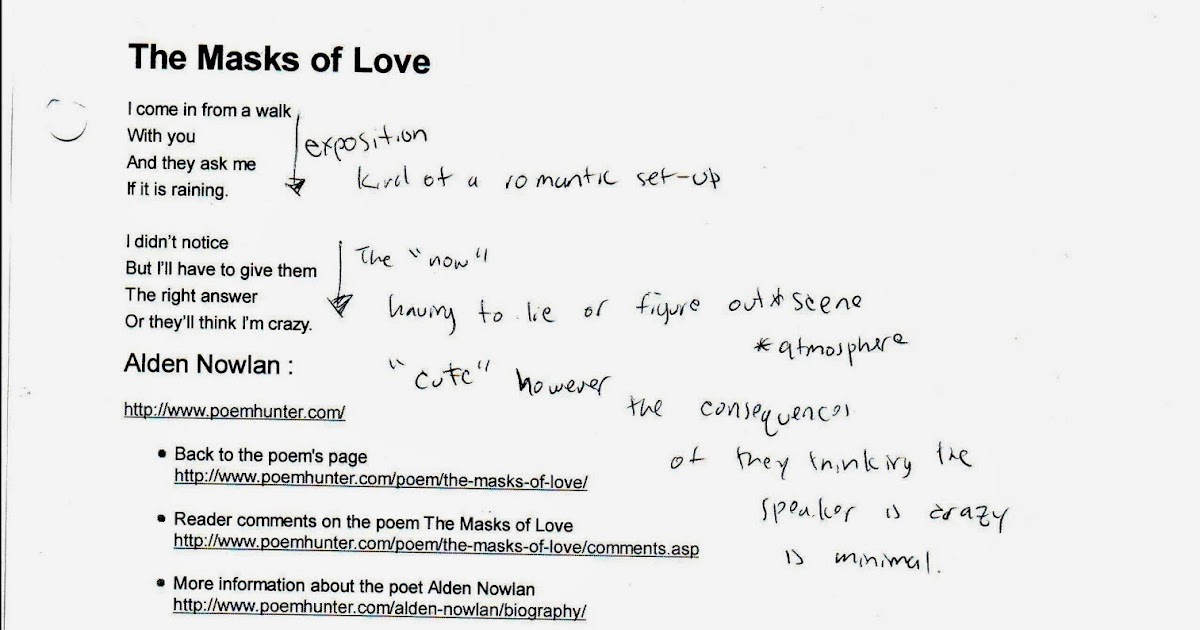 The Masks of Love
I come in from a walk
With you
And they ask me
If it is raining.
exposition
kind of a romantic set-up
I didn't notice
But I'll have to give them
The right answer
Or they'll think I'm crazy.
The "now"
having to lie or figure out * scene
* atmosphere
"cute" however
the consequences
of they thinking the
speaker is crazy
is minimal.
Alden Nowlan :
http://www.poemhunter.com/
• Back to the poem's page
http://www.poemhunter.com/poem/the-masks-of-love/
• Reader comments on the poem The Masks of Love
http://www.poemhunter.com/poem/the-masks-of-love/comments.asp
• More information about the poet Alden Nowlan
http://www.poemhunter.com/alden-nowlan/biography/